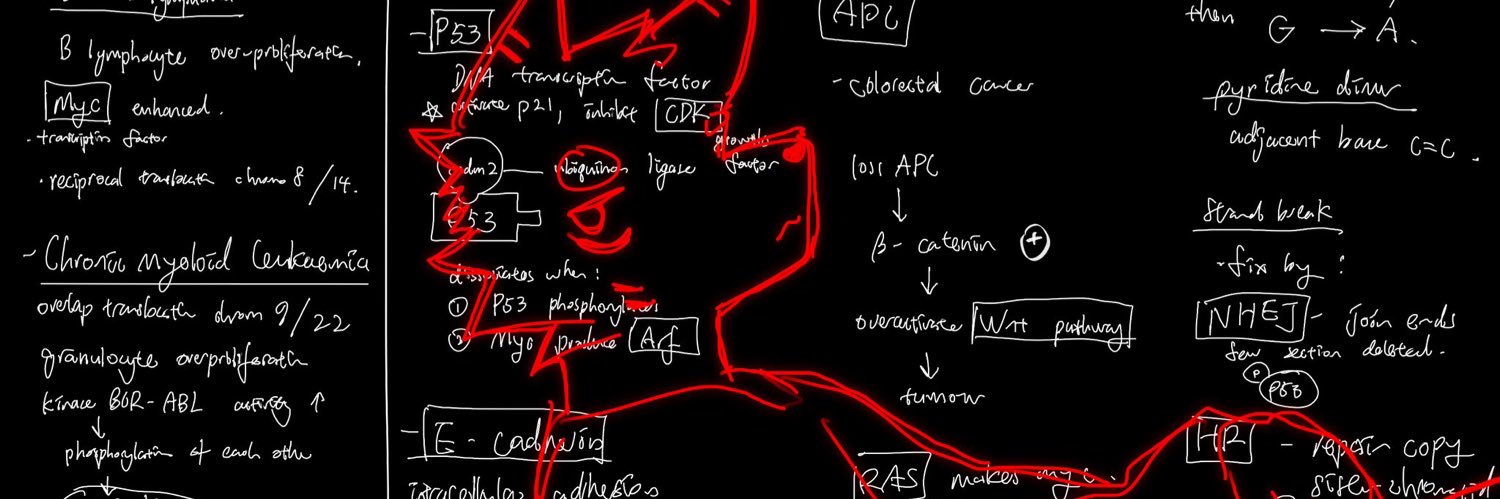 B lymphocyte over-proliferatn.
Myc enhanced.
- transcriptin factor
· reciprocal translocatn chromo 8/14.
- Chronic Myeloid Leukaemia
overlap translocatn chrom 9/22
granulocyte overproliferatn
kinase BCR-ABL activity ↑
↓
phosphorylatin of each othe
↓
- P53
DNA transcriptin factor
☆ activate p21, inhibit CDK
growth
mdm2 — ubiquitin ligase factor
P53
dissociates when:
① P53 phosphorylates
② Myc produce Arf
- E-cadherin
intracellular adhesion
APC
- colorectal cancer
loss APC
↓
β-catenin +
↓
overactivate Wnt pathway
↓
tumour
RAS makes myc.
then G → A.
pyridine dimer
adjacent base C=C.
Strand break
- fix by:
NHEJ - join ends
few section deleted.
P P53
HR - repair copy
sister-chromatid